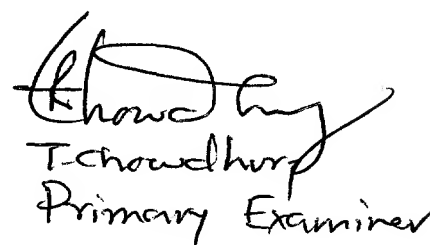 TKChowdhury
T-Chowdhury
Primary Examiner